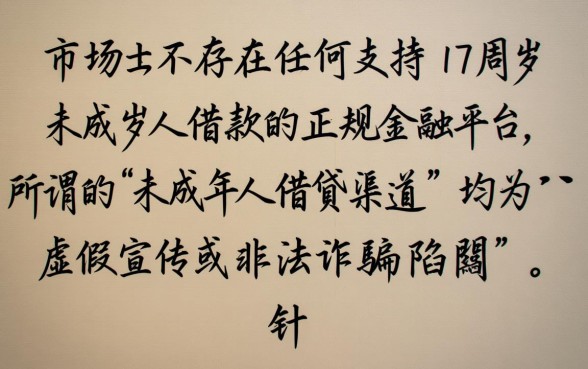 市场士不存在任何支持 17周岁
未成岁人借款的正规金融平台，
所谓的“未成年人借貸渠道” 均为“
虚假宣传或非法诈骗陷闗”。
针